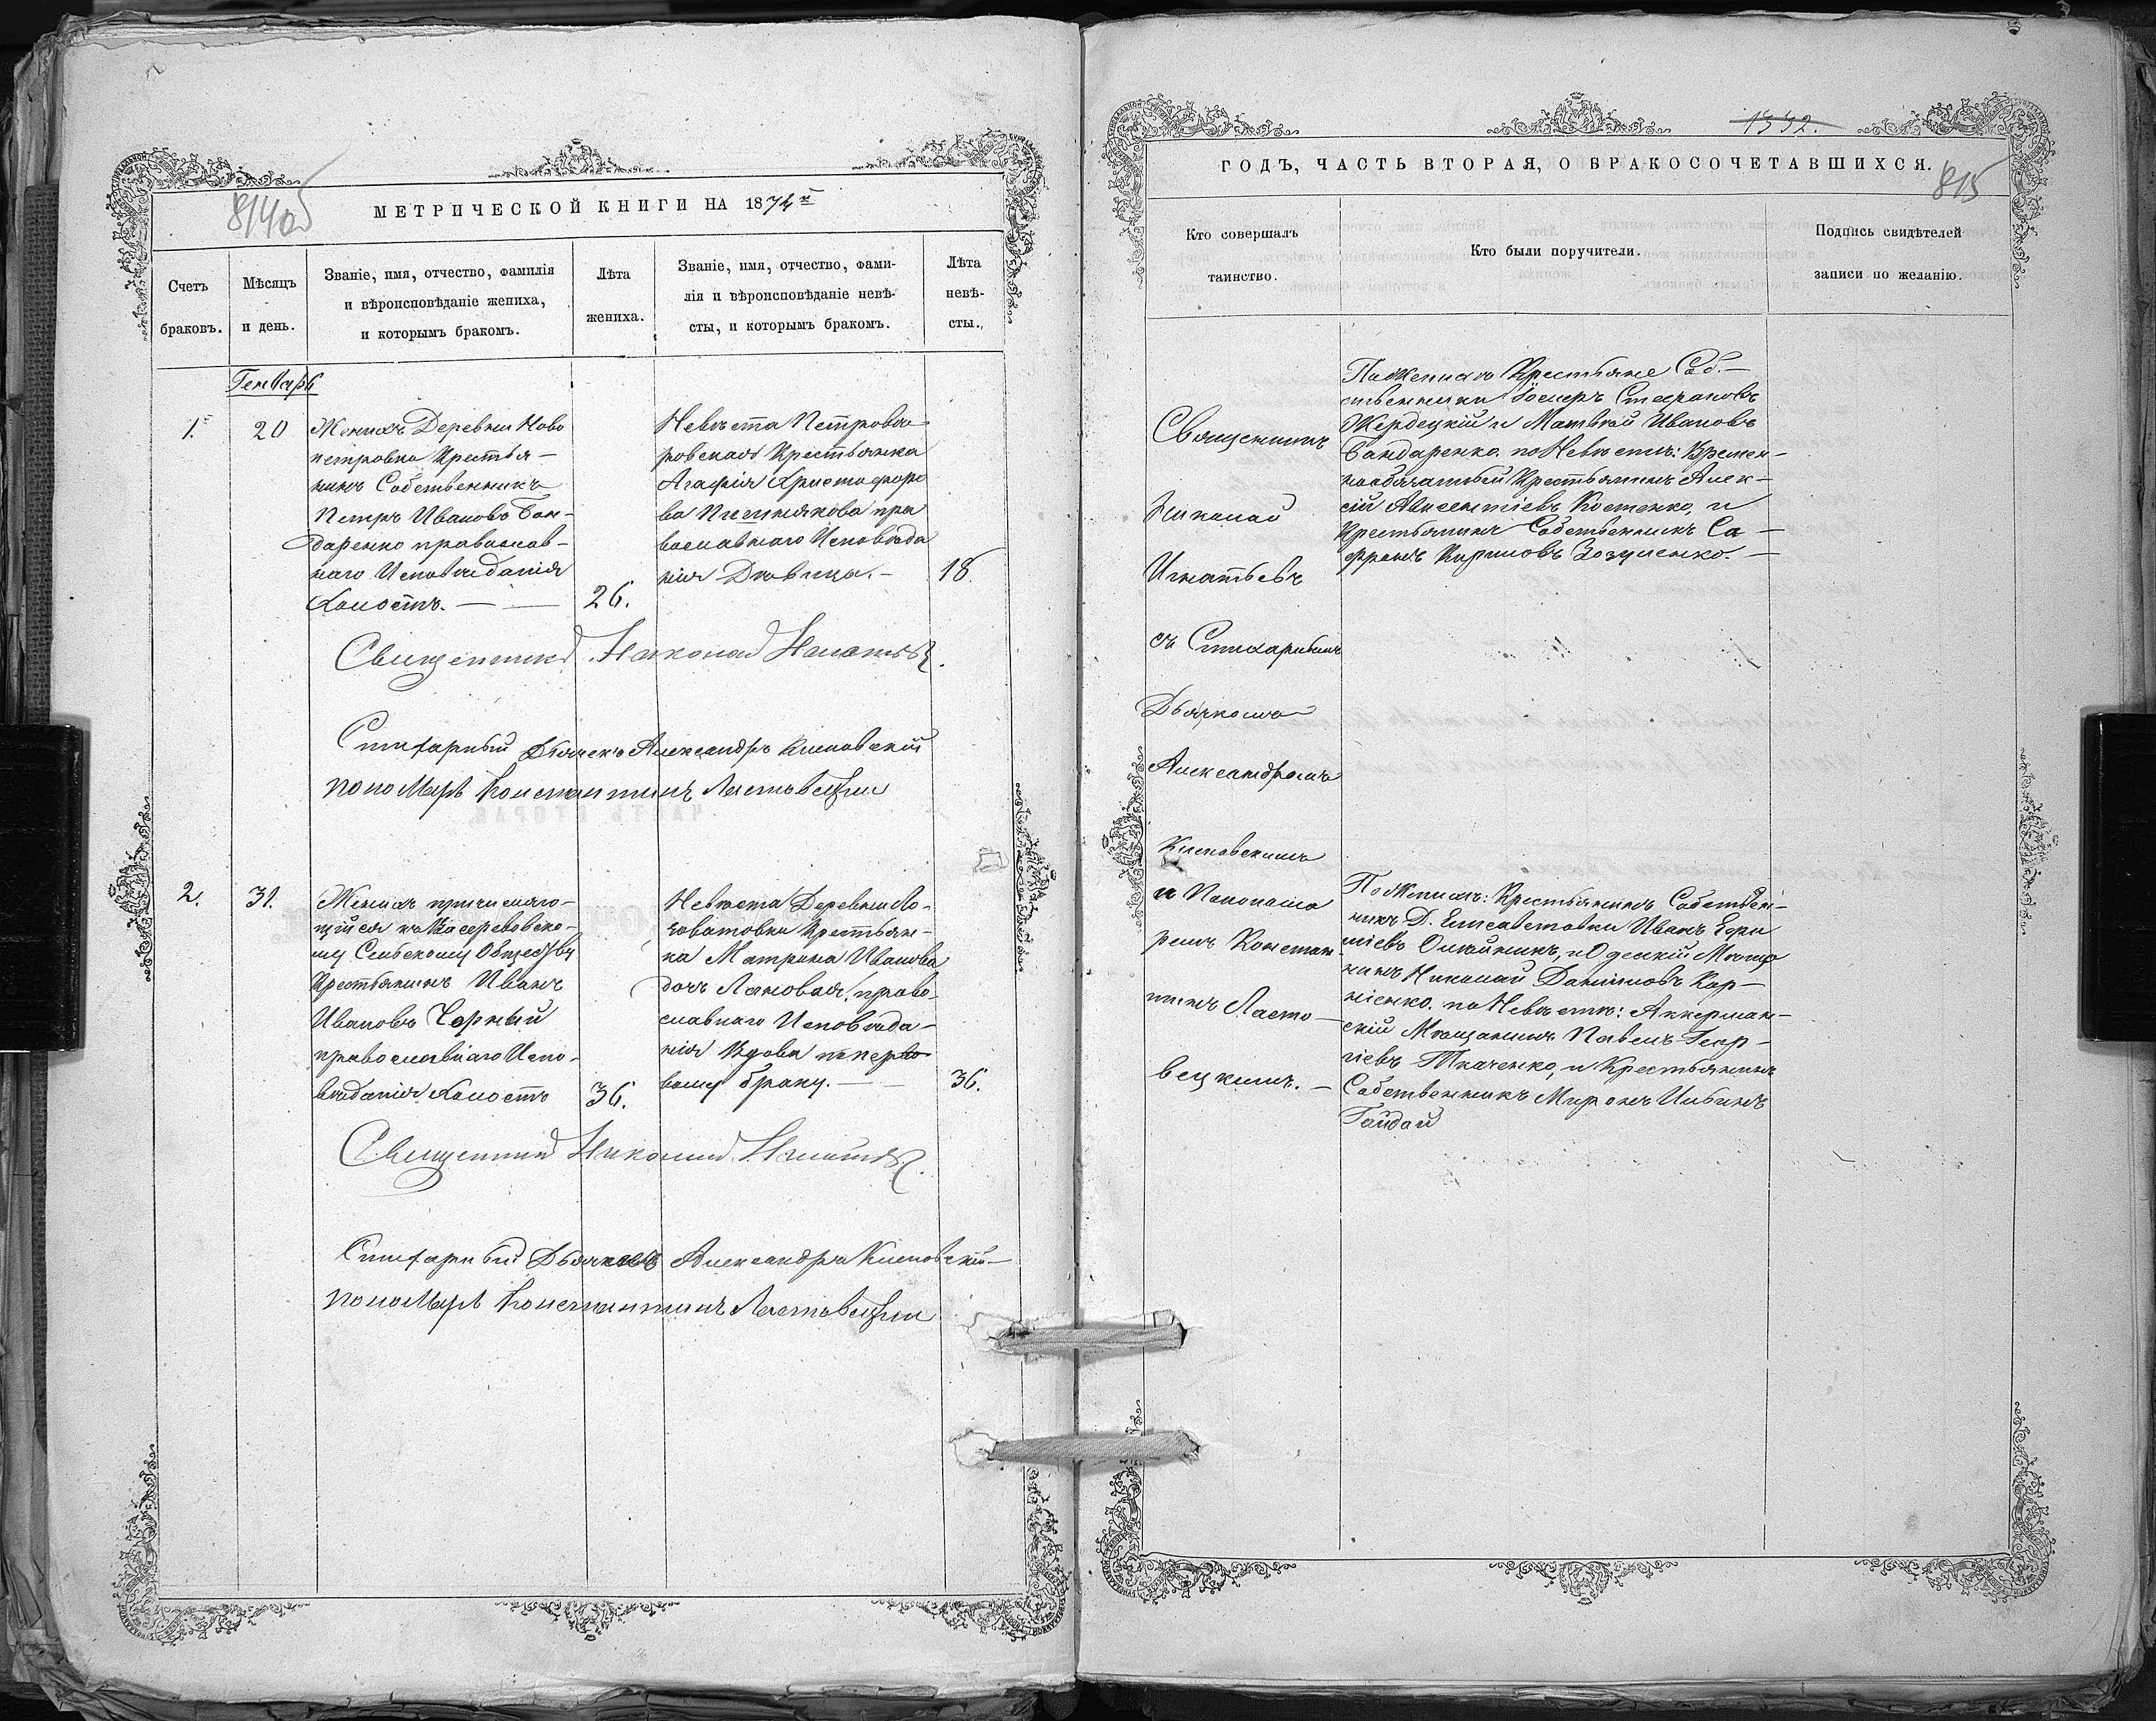 814об
МЕТРИЧЕСКОЙ КНИГИ НА 1874й
Счетъ браковъ.
Мѣсяцъ и день.
Званіе, имя, отчество, фамилія
и вѣроисповѣданіе жениха,
и которымъ бракомъ.
Лѣта жениха.
Званіе, имя, отчество, фами-
лія и вѣроисповѣданіе невѣ-
сты, и которымъ бракомъ.
Лѣта невѣ-
сты.
Генварь
1.
20
Женихъ Деревни Ново
петровки Крестья-
нинъ Собственникъ
Петръ Ивановъ Бон-
даренко православ-
наго Исповѣданія
Холостъ.
26.
Невѣста Петрова-
ровская Крестьянка
Агафія Христофоро
ва пра
вославнаго Исповѣда
нія Дѣвица.
18.
Священникъ Николай Игнатьевъ.
Стихарный Дьячекъ Александръ Кисловскій
пономарь Константинъ Ластовецкій
2.
31.
Женихъ причисляю-
щійся къ
му Сельскому Обществу
Крестьянинъ Иванъ
Ивановъ Черный
православнаго Испо-
вѣданія Холостъ
36.
Невѣста Деревни Ло-
зоватовки Крестьян-
ка Матрона Иванова
дочь Ляховая, право-
славнаго Исповѣда-
нія Вдова по перво
вому браку.
36.
Священникъ Николай Игнатьевъ.
Стихарный Дьячекъ Александръ Кисловскій
пономарь Константинъ Ластовецкій
1332.
ГОДЪ, ЧАСТЬ ВТОРАЯ, О БРАКОСОЧЕТАВШИХСЯ.
815
Кто совершалъ
таинство.
Кто были поручители.
Подпись свидѣтелей
записи по желанію.
Священникъ
Николай
Игнатьевъ
съ Стихарнымъ
Дьячкомъ
Александромъ
Кисловскимъ
и Пономаремъ
ремъ Констан-
тинъ Ласто-
вецкимъ.
По Женихѣ Крестьяне Соб-
ственники Стефановъ
Жердецкій и Матвѣй Ивановъ
Бандаренко. по Невѣстѣ: Времен-
нообязанный Крестьянинъ Алек-
сій Авксентіевъ Костенко, и
Крестьянинъ Собственникъ Са-
фронъ Кириловъ Зозуленко.
По Женихѣ: Крестьянинъ Собствен-
никъ Д. Елисаветовки Иванъ Ефи
міевъ Олейникъ, и Одескій Мѣща
нинъ Николай Даніиловъ Кор-
ніенко. по Невѣстѣ: Аккерман-
скій Мѣщанинъ Павелъ Геор-
гіевъ Ткаченко, и Крестьянинъ
Собственникъ Миронъ Ильинъ
Гайдай